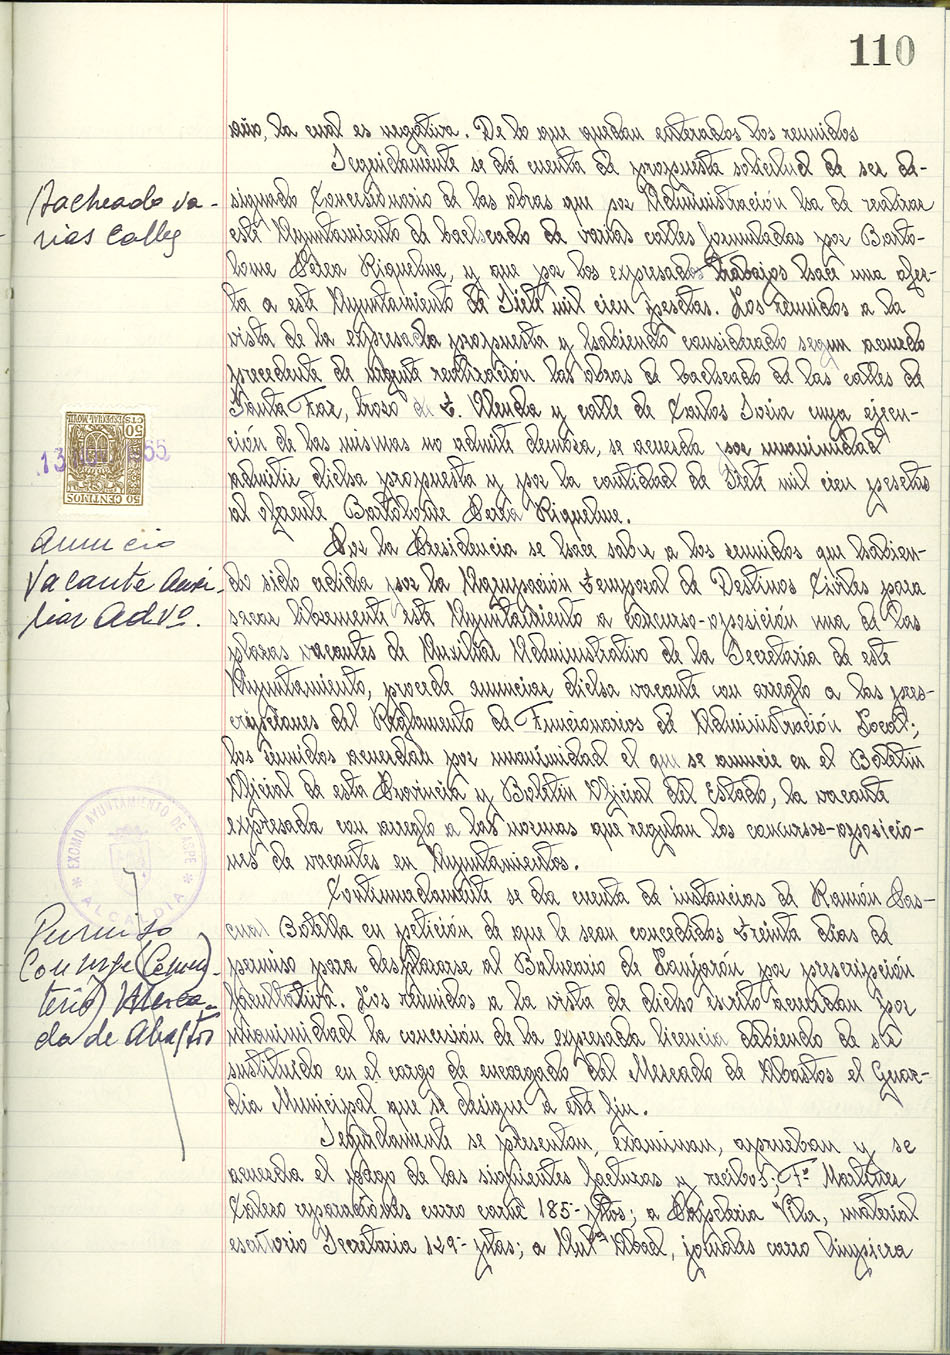 110
aún, la cual es negativa. De lo que quedan enterados los reunidos
Seguidamente se da cuenta de propuesta solicitud de ser de-
signado Concesionario de las obras que por Administración ha de realizar
este Ayuntamiento de bacheado de varias calles formuladas por Barto-
lome Perea Riquelme, y que por los expresados trabajos hace una ofer-
ta a este Ayuntamiento de Siete mil cien pesetas. Los reunidos a la
vista de la expresada propuesta y habiendo considerado segun acuerdo
precedente de urgente realización las obras de bacheado de las calles de
Santa Faz, trozo de T. Alenda y calle de Carlos Soria cuya ejecu-
ción de las mismas no admite demora, se acuerda por unanimidad
admitir dicha propuesta y por la cantidad de Siete mil cien pesetas
al oferente Bartolome Perea Riquelme.
Por la Presidencia se hace saber a los reunidos que habien-
do sido cedida por la Agrupación Temporal de Destinos Civiles para
sacar libremente este Ayuntamiento a concurso-oposición una de las
plazas vacantes de Auxiliar Administrativo de la Secretaría de este
Ayuntamiento, procede anunciar dicha vacante con arreglo a las pres-
cripciones del Reglamento de Funcionarios de Administración Local;
los reunidos acuerdan por unanimidad el que se anuncie en el Boletín
Oficial de esta Provincia y Boletín Oficial del Estado, la vacante
expresada con arreglo a las normas que regulan los concursos-oposicio-
nes de vacantes en Ayuntamientos.
Continuadamente se da cuenta de instancias de Ramón Pas-
cual Botella en petición de que le sean concedidos treinta dias de
permiso para desplazarse al Balneario de Lanjarón por prescripción
facultativa. Los reunidos a la vista de dicho escrito acuerdan por
unanimidad la concesión de la expresada licencia debiendo de ser
sustituido en el cargo de encargado del Mercado de Abastos el Guar-
dia Municipal que se designe a este fin.
Seguidamente se presentan, examinan, aprueban y se
acuerda el pago de las siguientes facturas y recibos; Fº Martínez
Calero reparaciones carro carne 185- ptas; a Papeleria Vila, material
escritorio Secretaria 129- ptas; a Antº Abad, jornales carro limpieza
Bacheado va-
rias calles
50 CENTIMOS
ESPECIAL MOVIL
13 1955
Anuncio
Vacante Auxi-
liar Adºvº.
EXCMO. AYUNTAMIENTO DE ASPE
ALCALDIA
Permiso
Conserje (Cemen-
terio) Merca-
do de Abastos